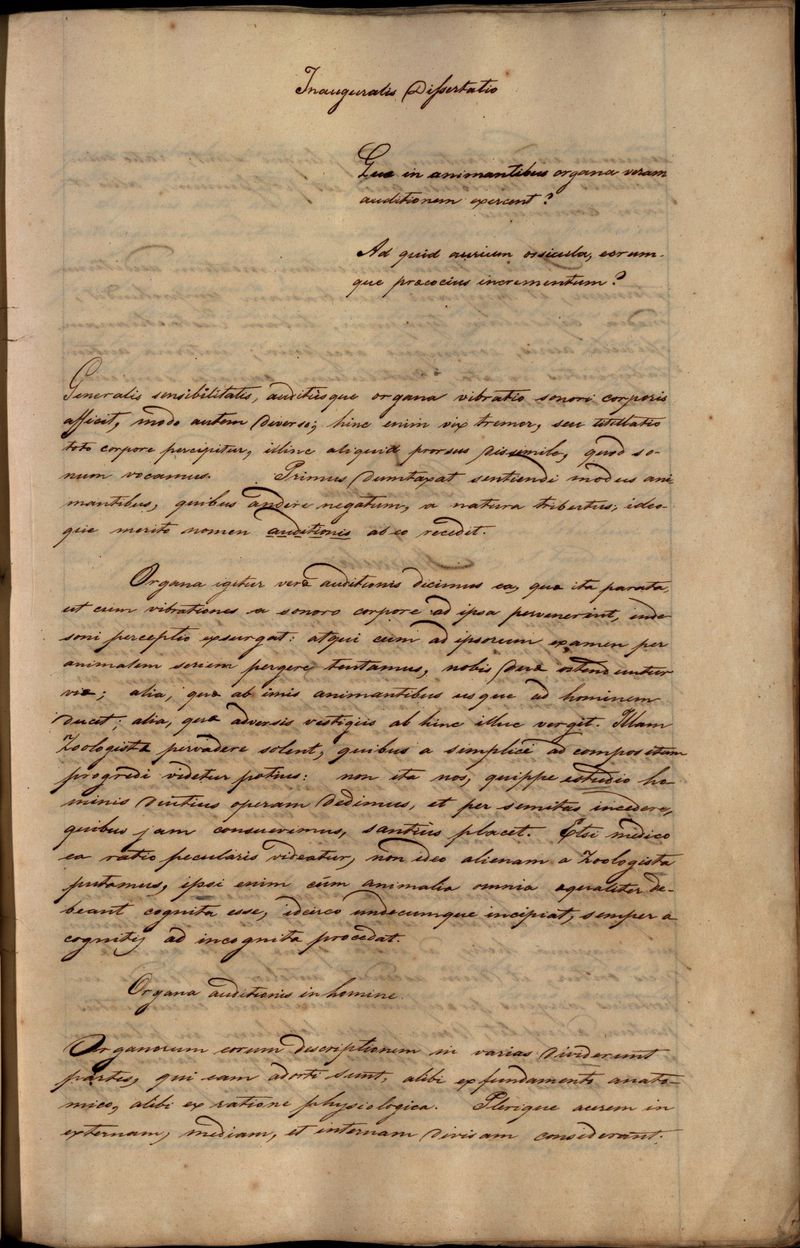 Inauguralis Dissertatio
Quæ in animantibus organa veram
auditionem exercent?
Ad quid aurium ossicula, eorum-
que præcocius incrementum?
Generalis sensibilitatis, auditusque organa vibratio sonori corporis
afficit, modo autem diverso; hinc enim vix tremor, seu titillatio
toto corpore percipitur, illinc aliquid prorsus dissimile, quod so-
num vocamus. Primus dumtaxat sentiendi modus ani
mantibus, quibus audire negatum, a natura tributus; ideo-
que merito nomen auditionis ab eo recedit.
Organa igitur veræ auditionis dicimus ea, quæ ita parata,
ut cum vibrationes a sonoro corpore ad ipsa pervenerint, inde
soni perceptio exsurgat: atqui cùm ad ipsorum examen per
animalem seriem pergere tentamus, nobis duæ ostenduntur
viæ; alia, quæ ab imis animantibus usque ad hominem
ducet; alia, quæ adversis vestigiis ab hinc illuc vergit. Illam
Zoologistæ pervadere solent, quibus a simplici ad compositum
progredi videtur potius: non ita nos, quippe estudio ho
minis diutius operam dedimus, et per semitas incedere,
quibus jam consuevimus, santius placet. Etsi medico
ea ratio peculiaris videatur, non ideo alienam a Zoologista
putamus, ipsi enim cùm animalia omnia æqualiter de-
beant cognita esse, idcirco undecumque incipiat, semper a
cognitis ad incognita procedat.
Organa auditionis in homine.
Organorum eorum descriptionem in varias dividerunt
partes, qui eam adorti sunt, alibi ex fundamento anato-
mico, alibi ex ratione physiologica. Plerique aurem in
externam, mediam, et internam divisam considerant.